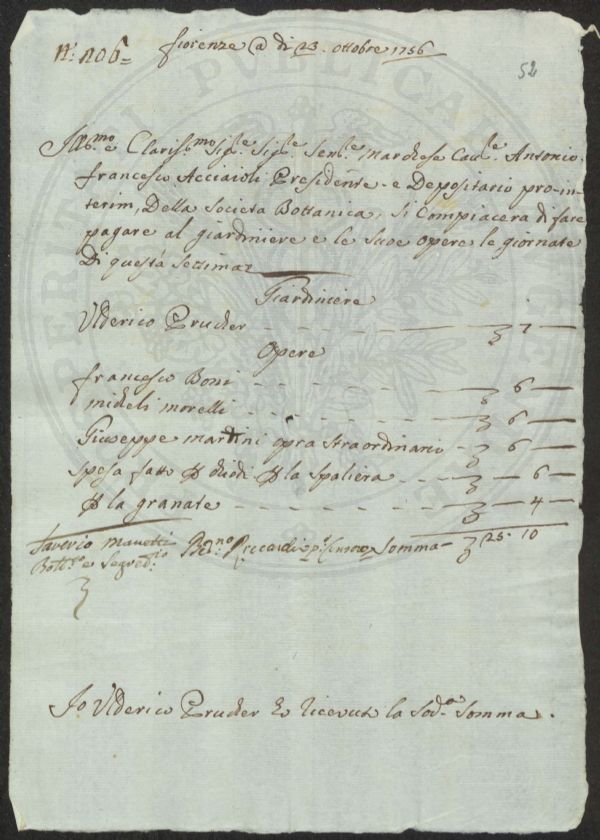 N.° 206=
fiorenze @ di 23. ottobre 1756
52
Ill.mo e Claris.mo Sig.le Sig.le Sen.le Marchese Cav.le Antonio
francesco Acciaioli Presidente e Depositario pro=in=
terim, Della Societa Bottanica, Si Compiacera di fare
pagare al giardiniere e le Sue opere le giornate
Di questa Settima.
Giardiniere
Uldericо Prucher 7
Opere
francesco Boni 6
micheli morelli 6
Giuseppe martini opra straordinario 6
spesa fatto P chiodi P la Spaliera 6
P la granate 4
Saverio Manetti
Bott.co e Segret.rio
Riccardi Somma 25. 10
Io Ulderico Prucher ho ricevuto la Sod.a Somma.